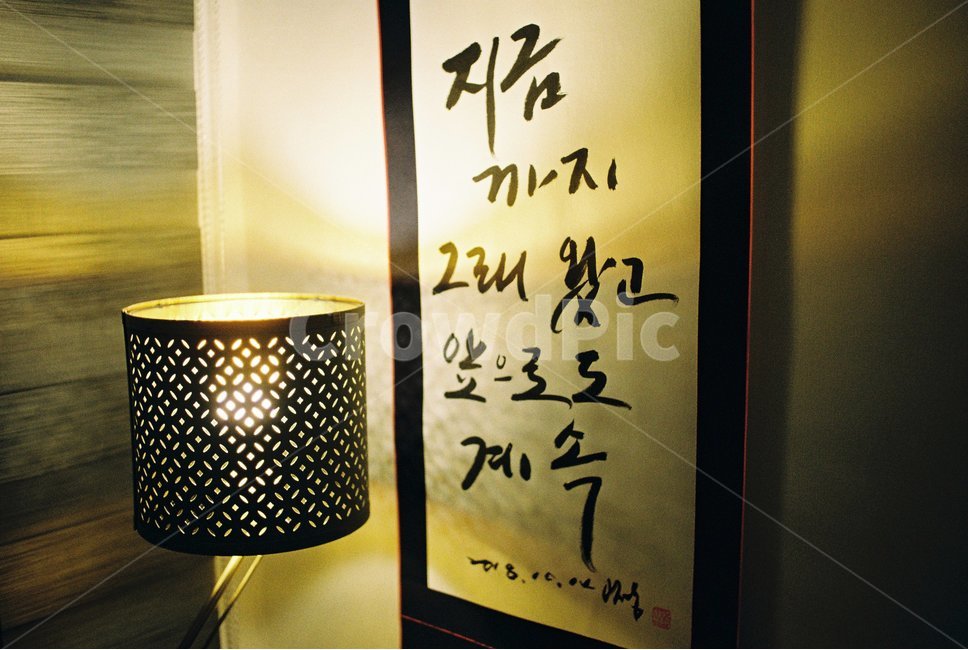 지금
까지
그래 왔고
앞으로도
계속
CrowdPic